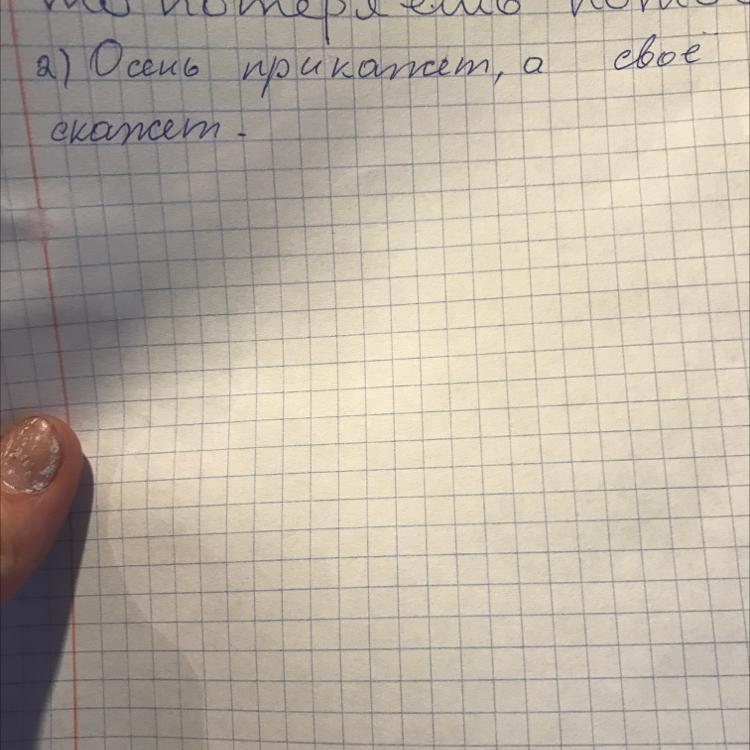 то потеряешь
2) Осень прикажет, а своё
скажет.